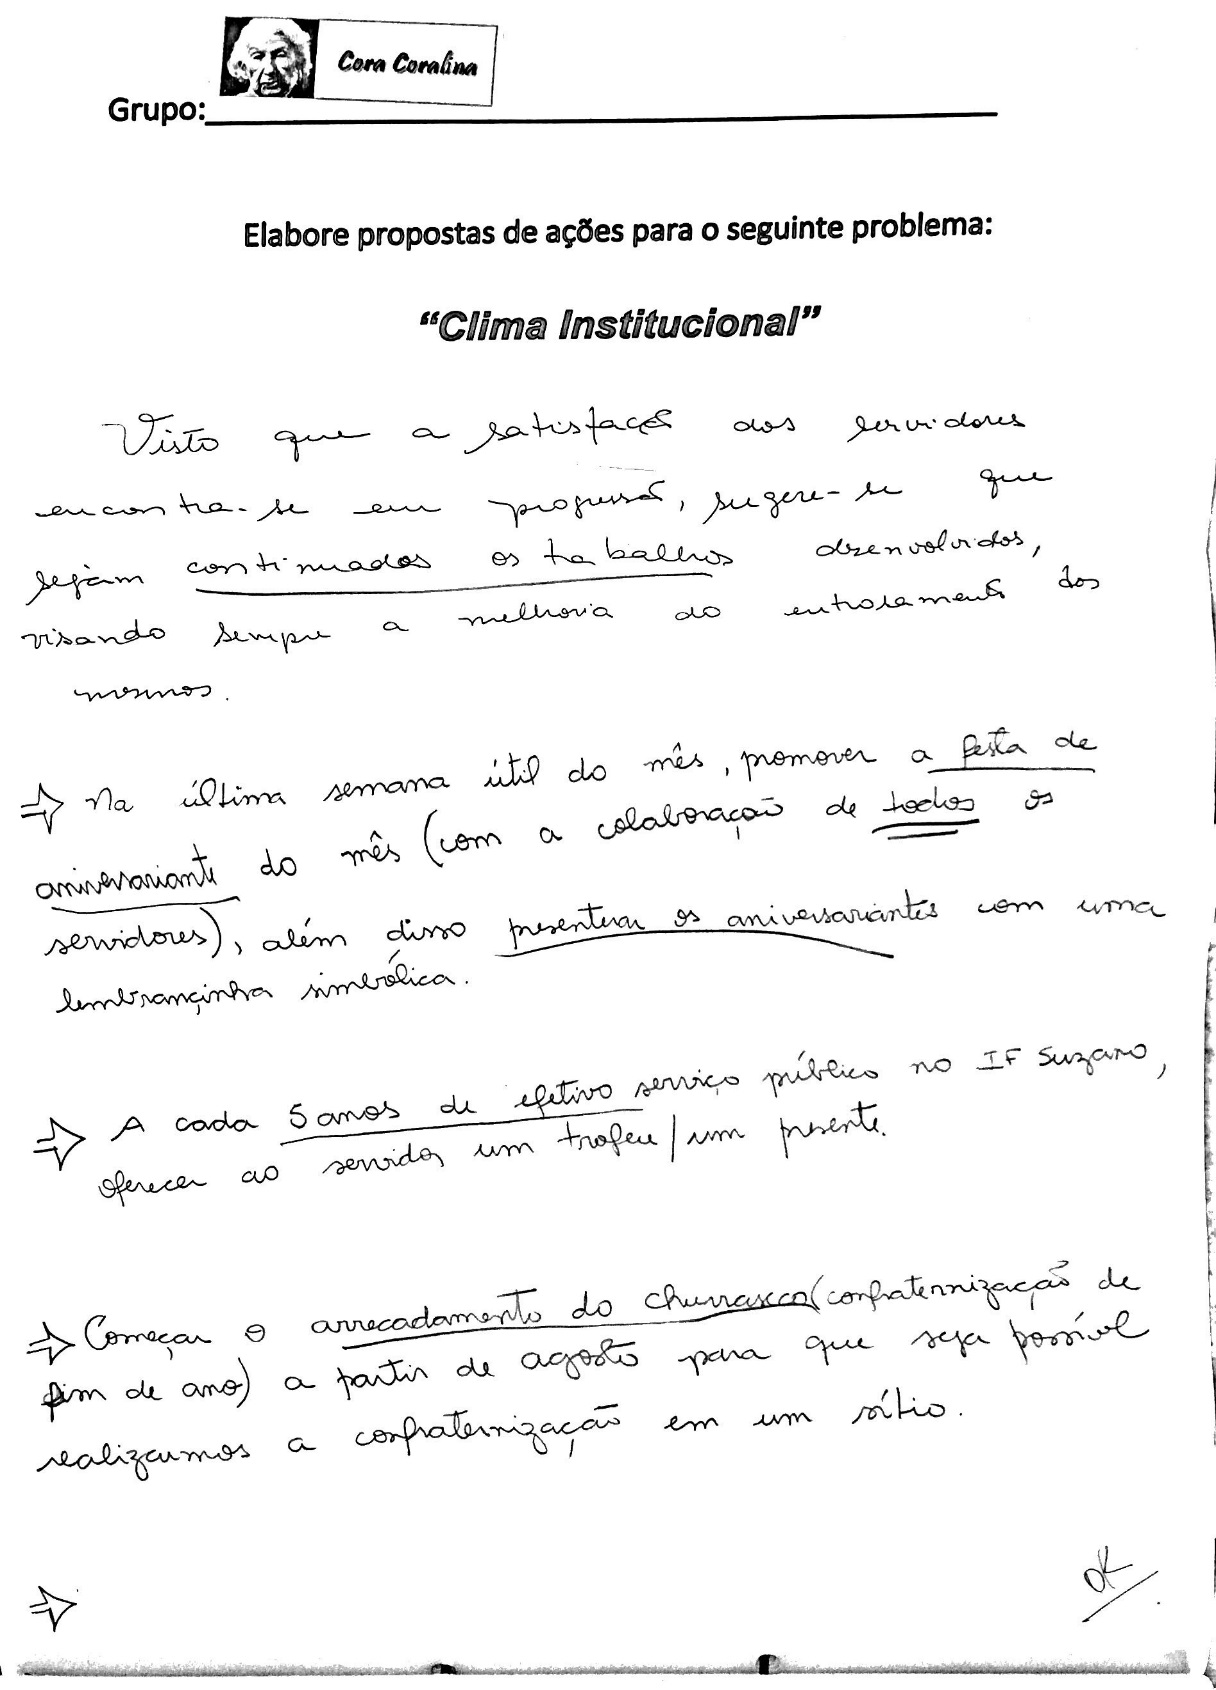 Cora Coralina
Grupo:
Elabore propostas de ações para o seguinte problema:
“Clima Institucional”
Visto que a satisfação dos servidores
encontra-se em progressão, sugere-se que
sejam continuados os trabalhos desenvolvidos,
visando sempre a melhoria do entrosamento dos
mesmos.
⇒ Na última semana útil do mês, promover a festa de
aniversariante do mês (com a colaboração de todos os
servidores), além disso presentear os aniversariantes com uma
lembrançinha simbólica.
⇒ A cada 5 anos de efetivo serviço público no IF Suzano,
oferecer ao servidor um trofeu/um presente.
⇒ Começar o arrecadamento do churrasco (confraternização de
fim de ano) a partir de agosto para que seja possível
realizarmos a confraternização em um sítio.
⇒
OK